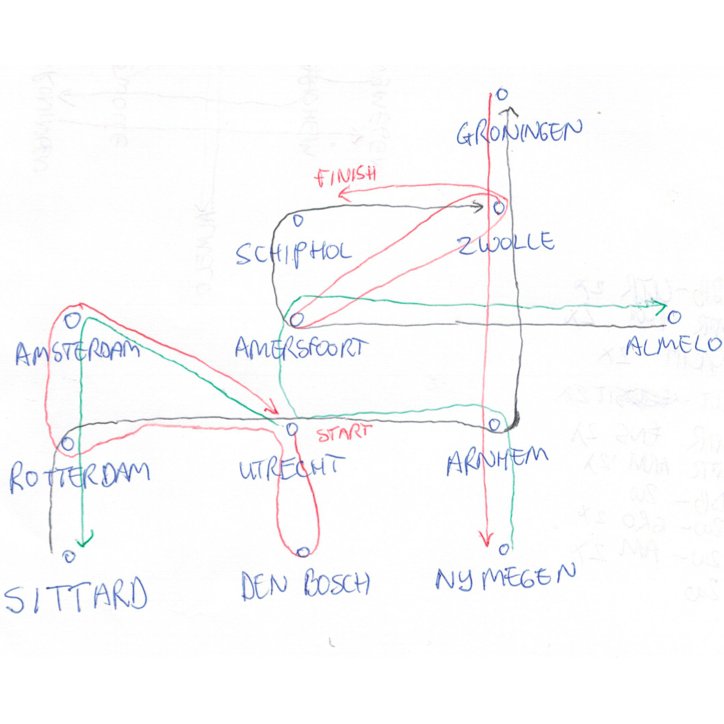 GRONINGEN
FINISH
SCHIPHOL
ZWOLLE
AMSTERDAM
AMERSFOORT
ALMELO
START
ROTTERDAM
UTRECHT
ARNHEM
SITTARD
DEN BOSCH
NYMEGEN